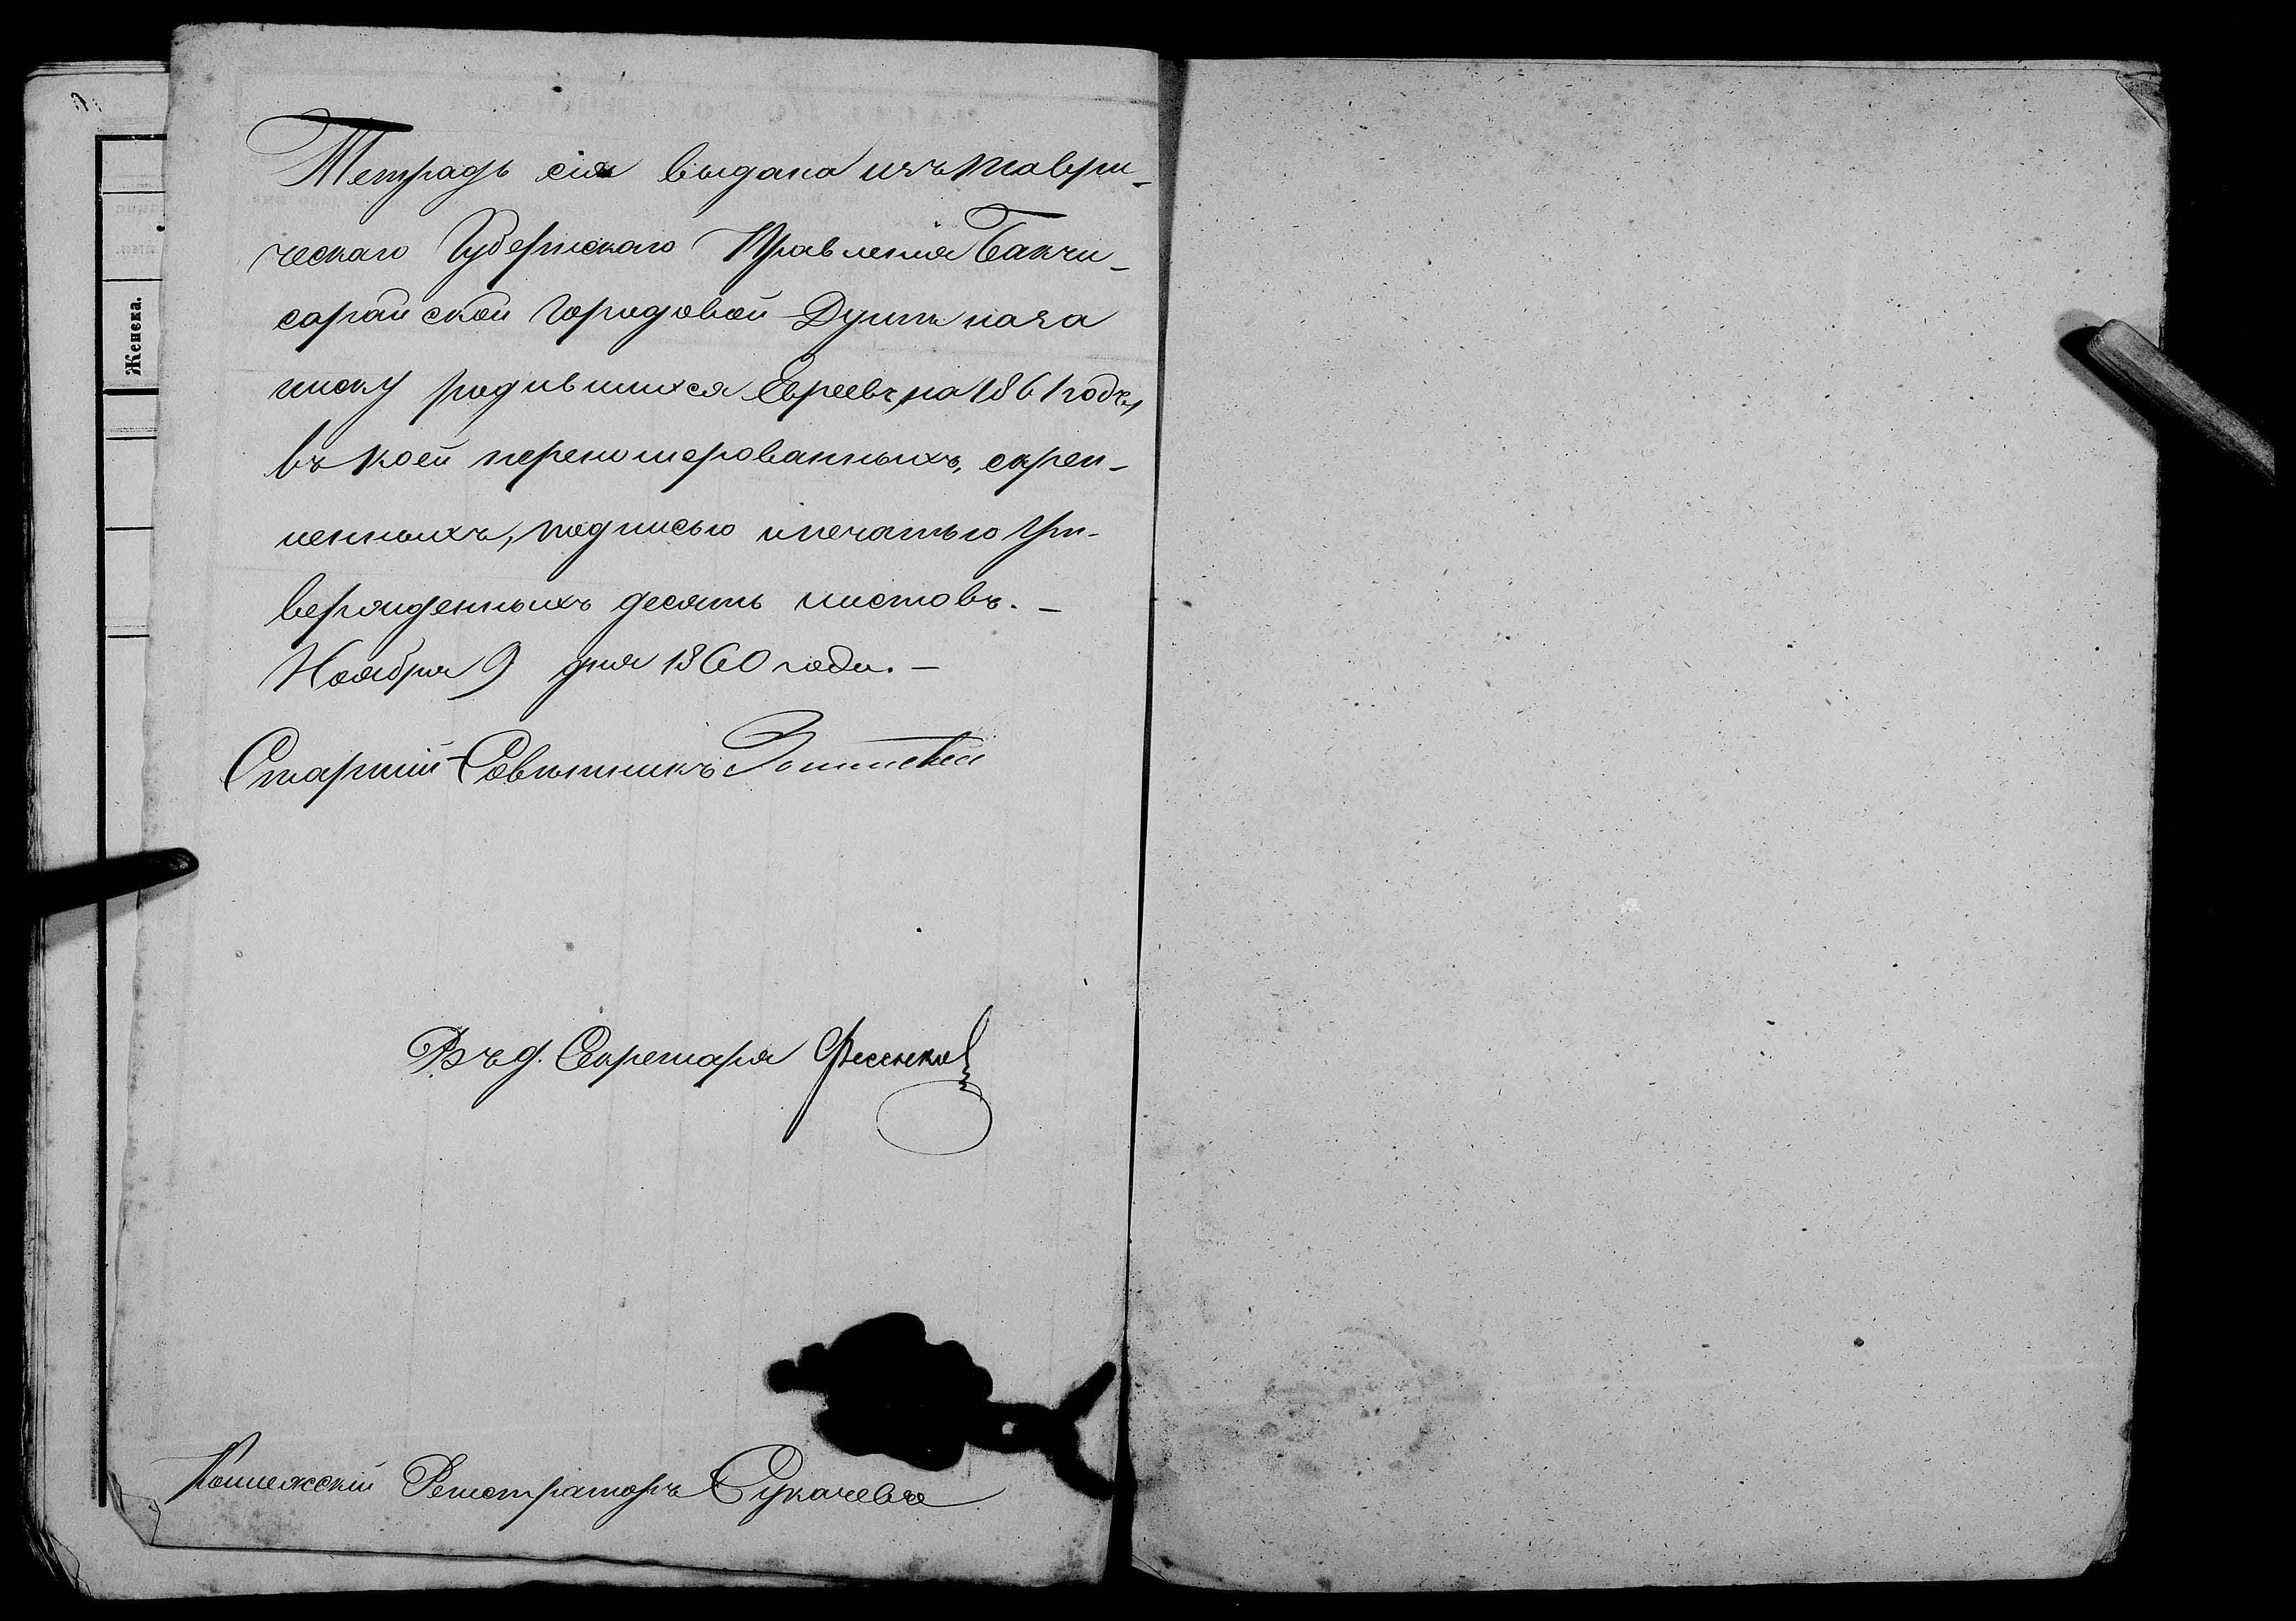 Женска.
Тетрадь сія выдана изъ Таври-
ческаго Губернскаго Правленія Бакчи-
сарайской Городовой Думѣ на за
писку родившихся Евреевъ, на 1861 годъ,
въ коей перенумерованныхъ, скреп-
ленныхъ, подписью и печатью ут-
вержденныхъ десять листовъ. -
Ноября 9 дня 1860 года. -
Старшій Совѣтникъ
Въ д. Секретаря
Коллежскій Регистраторъ Сукачевъ